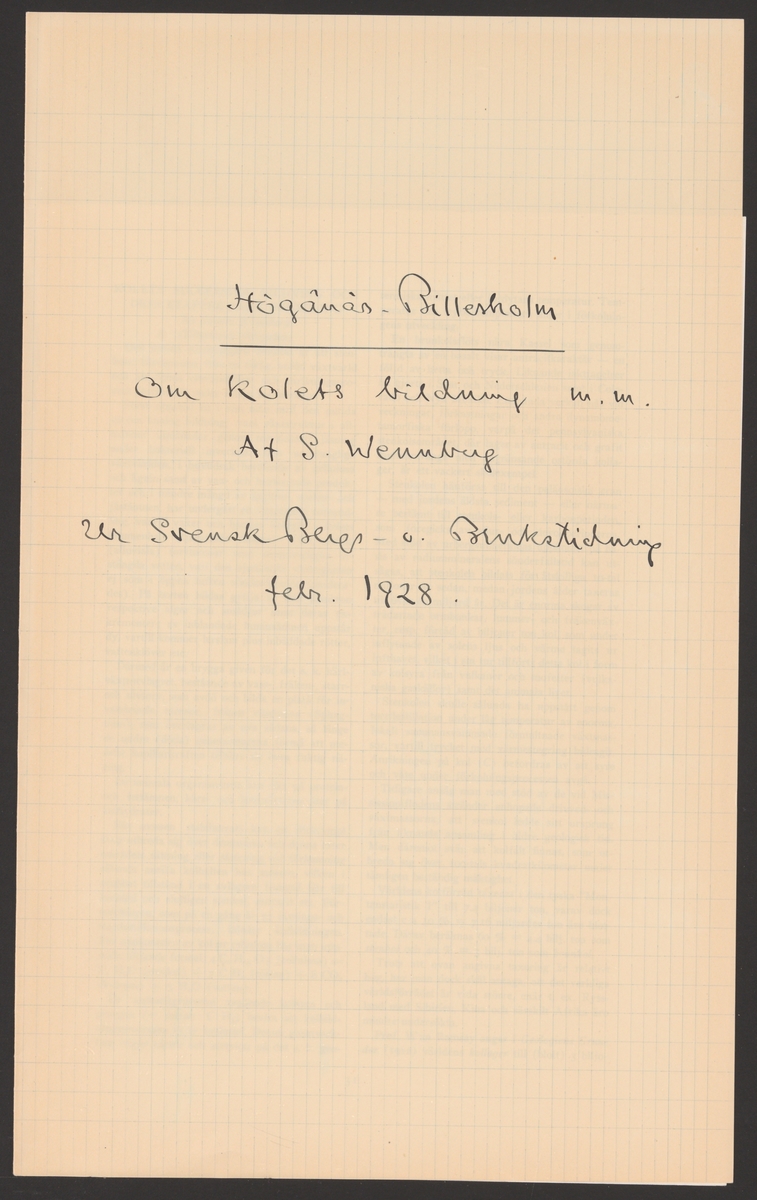 Höganäs-Billesholm
Om kolets bildning m.m.
Af S. Wennberg
Ur Svensk Bergs- o. Brukstidning
febr. 1928.